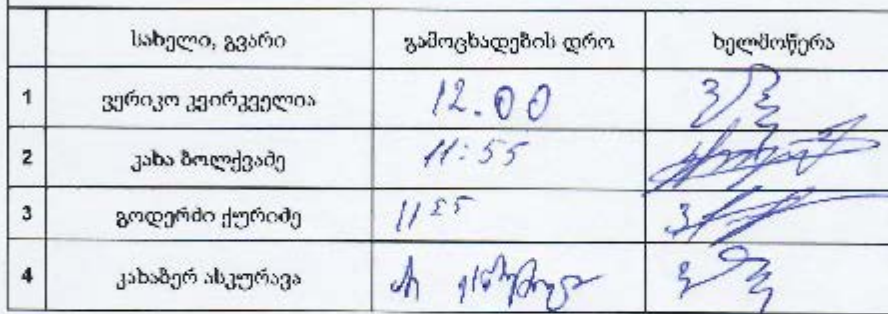 სახელი, გვარი გამოცხადების დრო ხელმოწერა
1 ვერიკო კვირკველია 12.00
2 კახა ბოლქვაძე 11:55
3 გოდერძი ქურიძე 11 55
4 კახაბერ ასკურავა არ